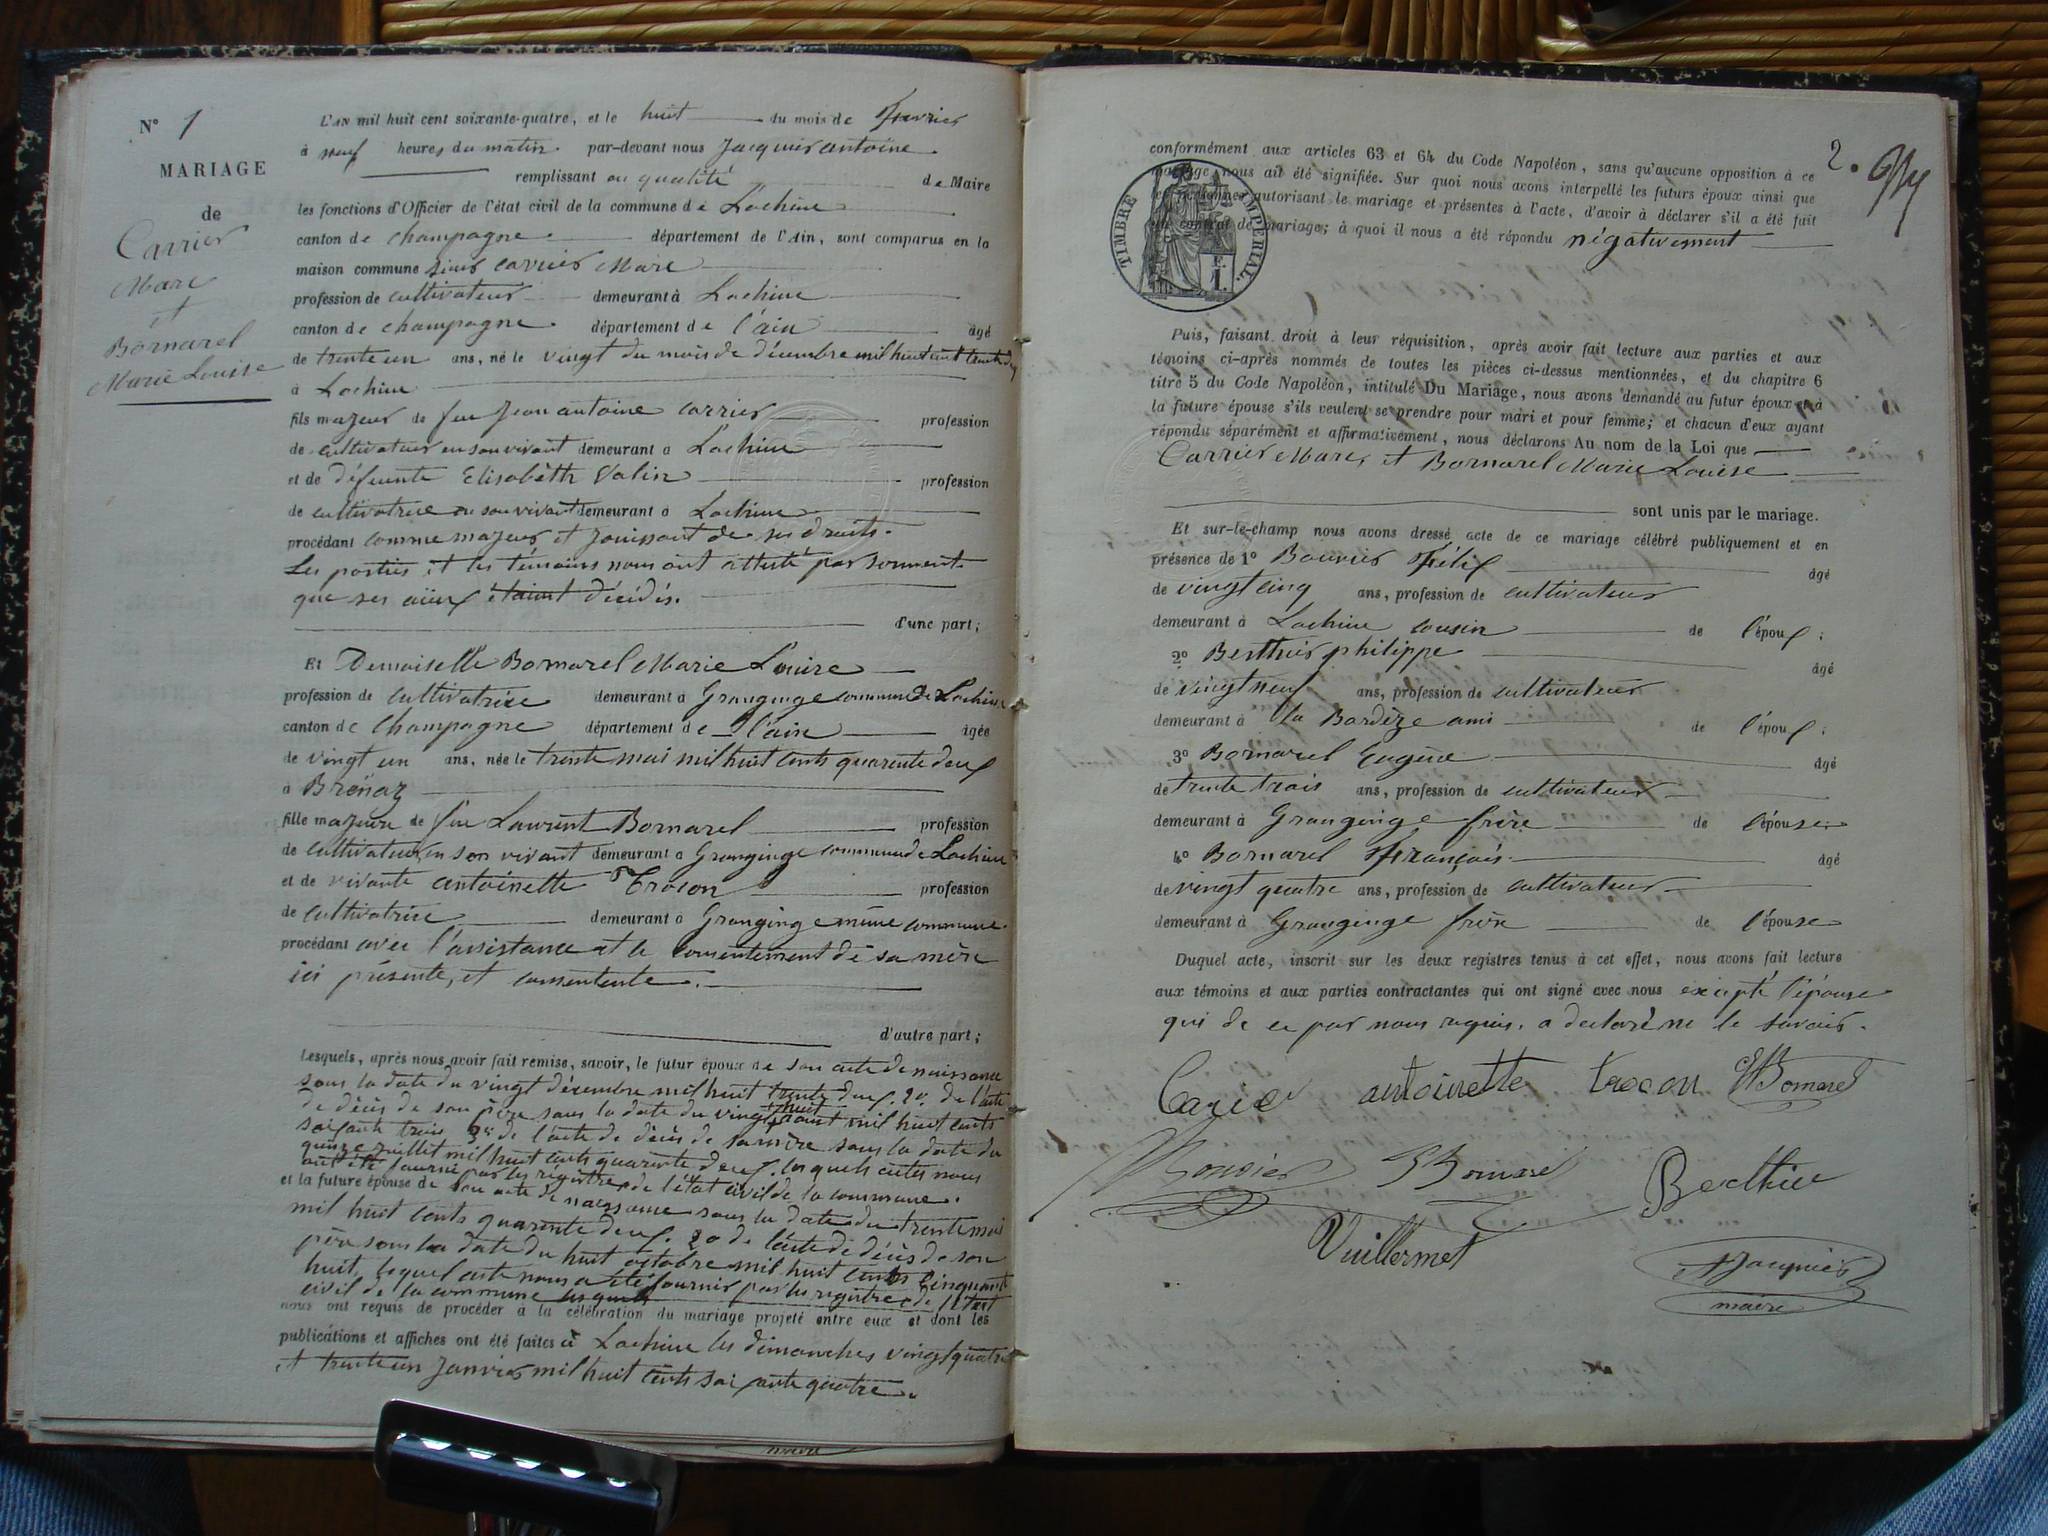 N° 1
MARIAGE
de
Carrier
Marc
et
Bornarel
Marie Louise
L'AN mil huit cent soixante-quatre, et le huit du mois de fevrier
à neuf heures du matin par-devant nous Jacquier antoine
remplissant en qualité de Maire
les fonctions d'Officier de l'état civil de la commune de Lochieu
canton de champagne département de l'Ain, sont comparus en la
maison commune sieur carrier Marc
profession de cultivateur demeurant à Lochieu
canton de champagne département de l'ain âgé
de trente un ans, né le vingt du mois de décembre mil huit cent trente deux
à Lochieu
fils majeur de feu Jean antoine carrier profession
de cultivateur en son vivant demeurant a Lochieu
et de défeunte Elisabeth Valin profession
de cultivatrice en son vivant demeurant à Lochieu
procédant comme majeur et jouissant de ses droits.
Les parties et les témoins nous ont attesté par serment
que ses aïeux étaient décédés.
d'une part;
Et Demoiselle Bornarel Marie Louise
profession de cultivatrice demeurant à Granginge commune de Lochieu
canton de champagne département de l'ain âgée
de vingt un ans, née le trente mai mil huit cents quarente deux
à Brénaz
fille majeure de feu Laurent Bornarel profession
de cultivateur en son vivant demeurant a Granginge commune de Lochieu
et de vivante antoinette Trocon profession
de cultivatrice demeurant à Granginge même commune.
procédant avec l'assistance et le consentement de sa mère
ici présente, et consentente.
d'autre part;
Lesquels, après nous avoir fait remise, savoir, le futur époux de son acte de naissance
sous la date du vingt décembre mil huit trente deux. 2° de l'acte
de décès de son père sous la date du vingt huit aout mil huit cents
soixante trois 3° de l'acte de décès de sa mère sous la date du
quinze juillet mil huit cents quarente deux. lesquels actes nous
ont été fournis par les régistres de l'état civil de la commune.
et la future épouse de son acte de naissance sous la date du trente mai
mil huit cents quarente deux. 2° de l'acte de décès de son
père sous la date du huit octobre mil huit cents cinquante
huit, lequel acte nous a été fournis par les registres de l'état
civil de la commune
nous ont requis de procéder à la célébration du mariage projeté entre eux et dont les
publications et affiches ont été faites à Lochieu les dimanches vingt quatre
et trente un Janvier mil huit cents soixante quatre.
2.
conformément aux articles 63 et 64 du Code Napoléon, sans qu'aucune opposition à ce
mariage nous ait été signifiée. Sur quoi nous avons interpellé les futurs époux ainsi que
les personnes autorisant le mariage et présentes à l'acte, d'avoir à déclarer s'il a été fait
un contrat de mariage; à quoi il nous a été répondu négativement
TIMBRE IMPÉRIAL
Puis, faisant droit à leur réquisition, après avoir fait lecture aux parties et aux
témoins ci-après nommés de toutes les pièces ci-dessus mentionnées, et du chapitre 6
titre 5 du Code Napoléon, intitulé Du Mariage, nous avons demandé au futur époux et à
la future épouse s'ils veulent se prendre pour mari et pour femme; et chacun d'eux ayant
répondu séparément et affirmativement, nous déclarons Au nom de la Loi que
Carrier Marc, et Bornarel Marie Louise
sont unis par le mariage.
Et sur-le-champ nous avons dressé acte de ce mariage célébré publiquement et en
présence de 1° Bouvier Félix âgé
de vingt cinq ans, profession de cultivateur
demeurant à Lochieu cousin de l'époux;
2° Berthier philippe âgé
de vingt neuf ans, profession de cultivateur
demeurant à la Bardèze ami de l'époux;
3° Bornarel Eugène âgé
de trente trois ans, profession de cultivateur
demeurant à Granginge frère de l'épouse;
4° Bornarel François âgé
de vingt quatre ans, profession de cultivateur
demeurant à Granginge frère de l'épouse
Duquel acte, inscrit sur les deux registres tenus à cet effet, nous avons fait lecture
aux témoins et aux parties contractantes qui ont signé avec nous excepté l'épouse
qui de ce par nous requis, a declaré ne le savoir.
Carier antoinette trocon Bornarel
Bouvier Bornarel Berthier
Vuillermet Jacquier
maire